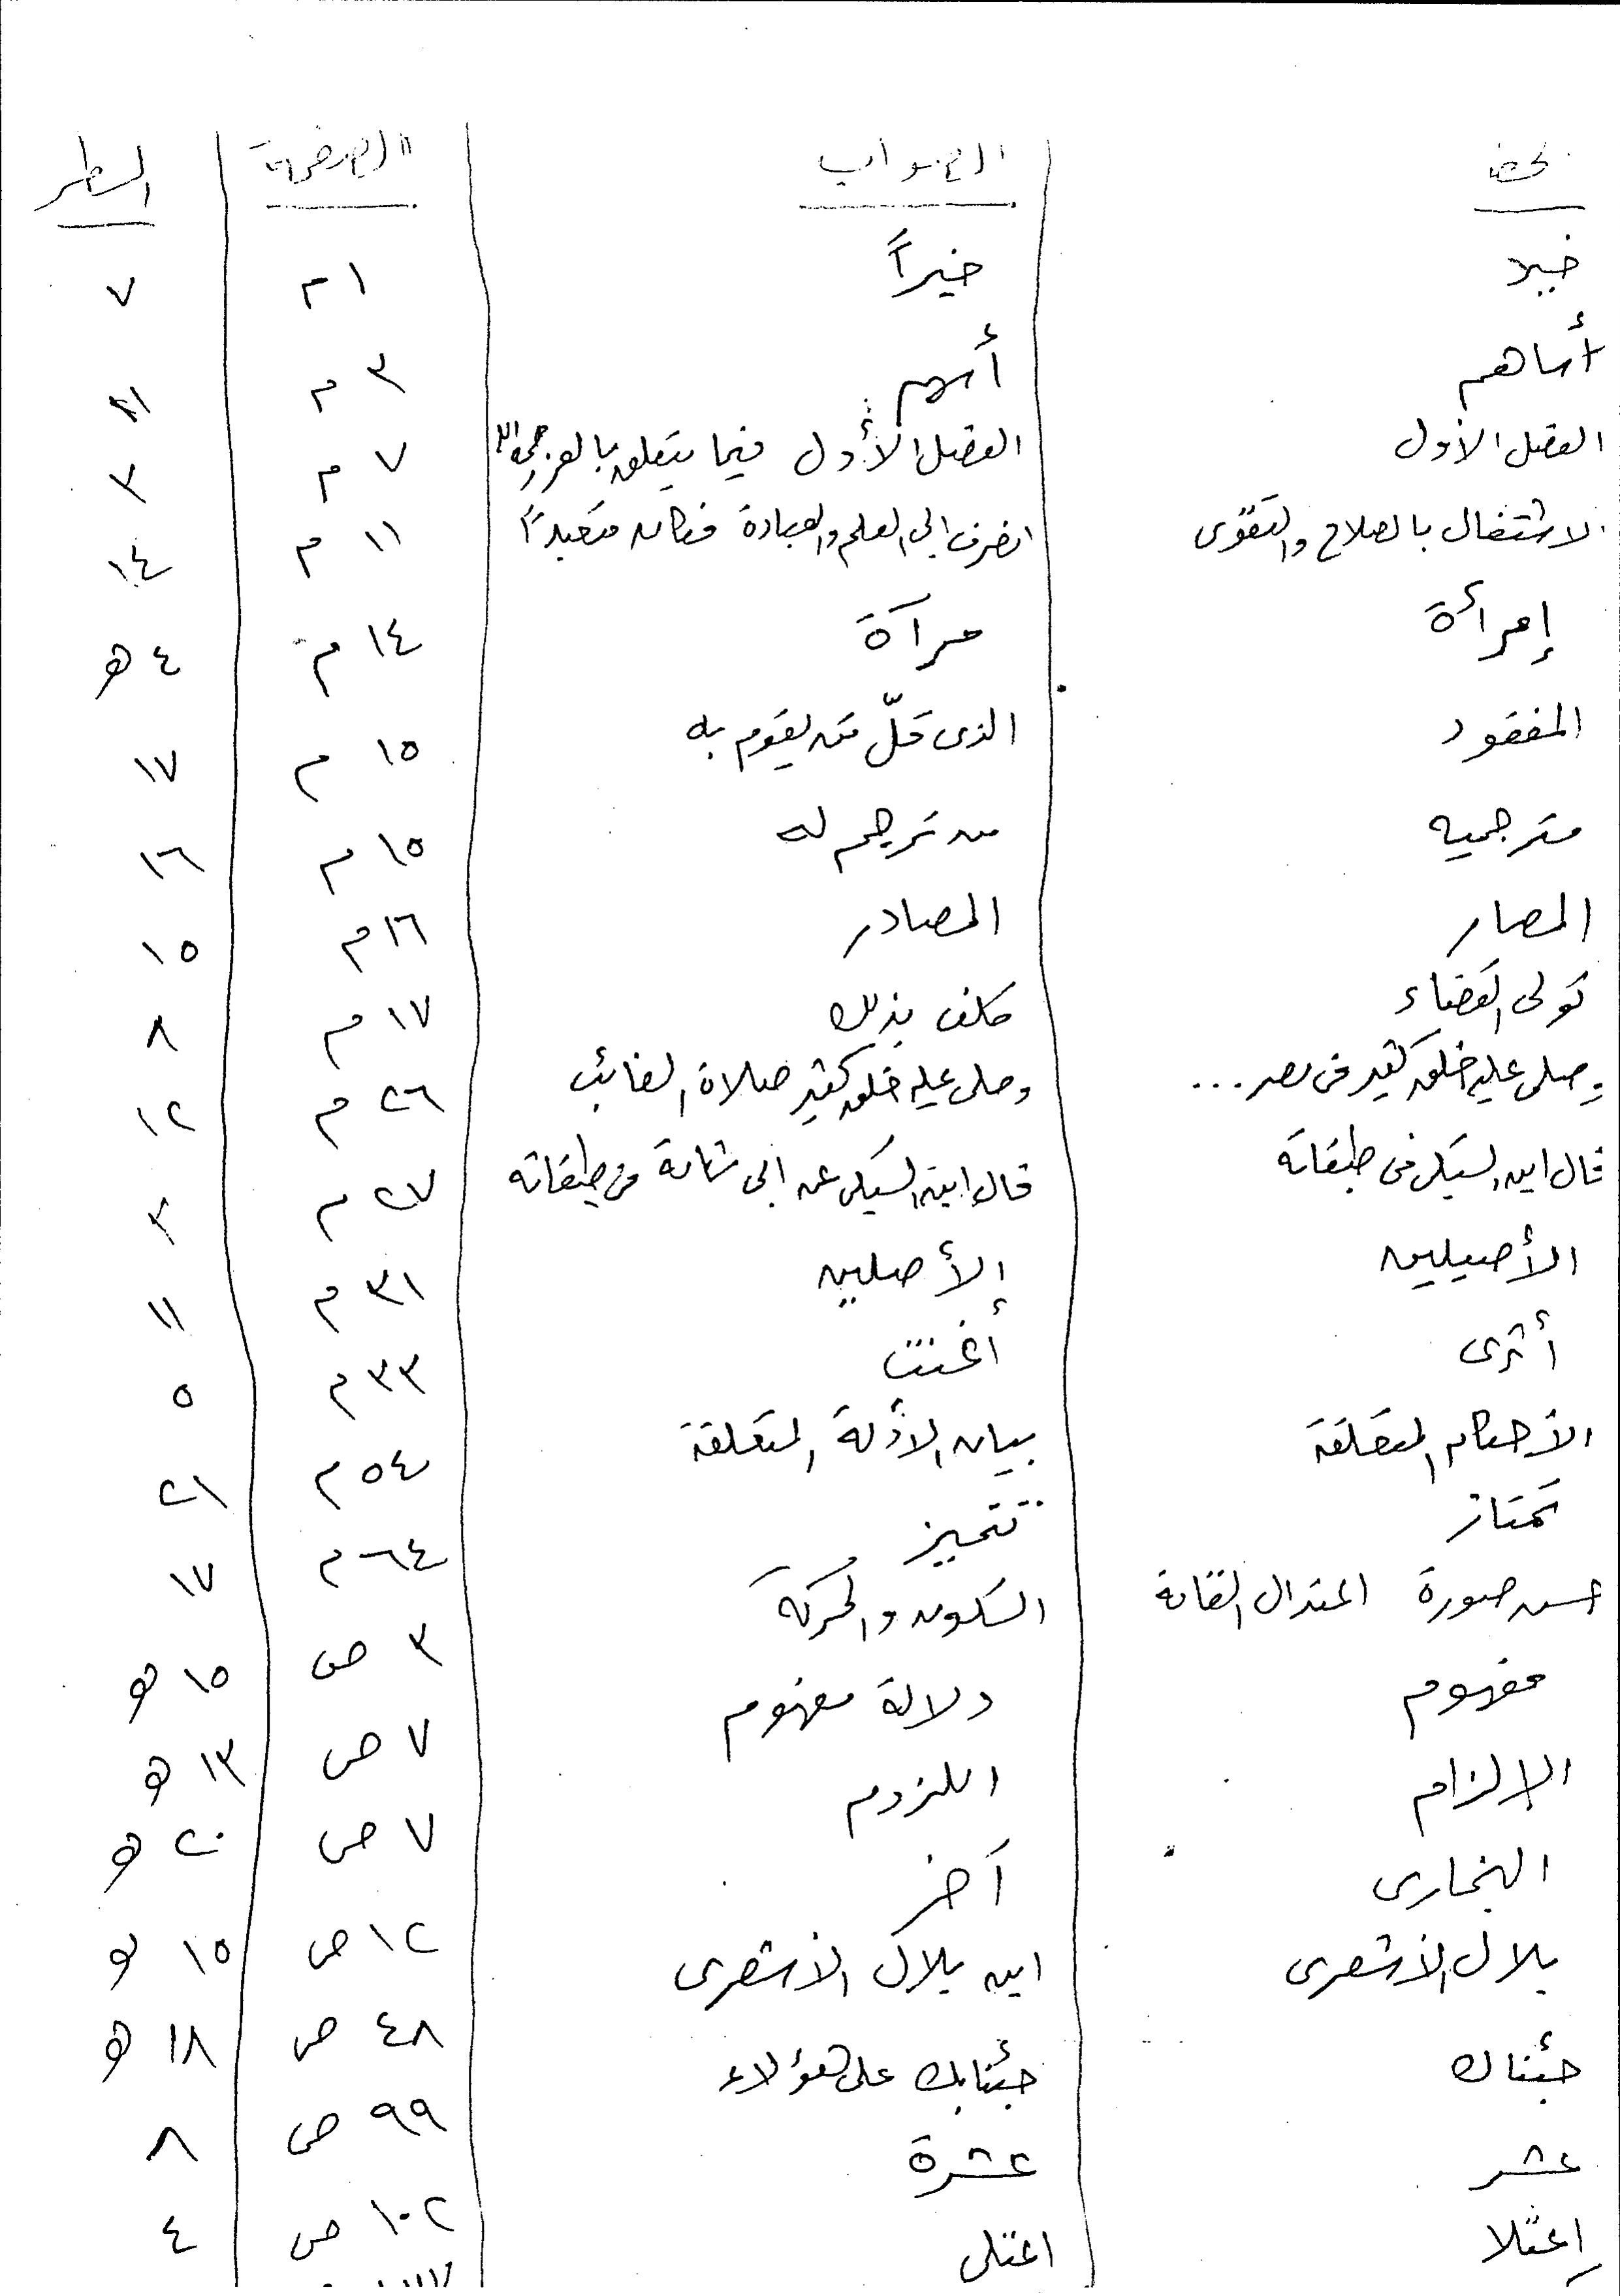 الخطأ الصواب الصفحة السطر
خيلا خيراً ١ م ٧
أساهم أسهم ٣ م
الفصل الأول الفصل الأول فيما يتعلق بالعز ٧ م ٣
الاشتغال بالصلاح والتقوى انصرف إلى العلم والعبادة فكان متعبداً ١١ م ١٤
إمرأة مرآة ١٤ م ٤ هـ
المفقود الذى قلّ من يقوم به ١٥ م ١٧
مترجميه من ترجم له ١٥ م ١٦
المصار المصادر ١٦ م ١٥
تولى القضاء كلف بذلك ١٧ م ٨
وصلى عليه خلق كثير فى مصر ... وصلى عليه خلق كثير صلاة الغائب ٢٦ م ١٢
قال ابن السبكى فى طبقاته قال ابن السبكى عن ابى شامة فى طبقاته ٢٧ م ٣
الأصيليين الأصليين ٣١ م ١١
أثرى أغنت ٣٣ م ٥
الأحكام المتعلقة بيان الأدلة المتعلقة ٥٤ م ٢١
تمتاز تتميز ٦٤ م ١٧
حسن صورة اعتدال القامة السكون والحركة ٣ ص ١٥ هـ
مفهوم دلالة مفهوم ٧ ص ١٣ هـ
الإلزام اللزوم ٧ ص ٢٠ هـ
البخارى آخر ١٢ ص ١٥ هـ
بلال الأشعرى ابن بلال الأشعرى ٤٨ ص ١٨ هـ
جئناك جئنا بك على هؤلاء ٩٩ ص ٨
عشر عشرة ١٠٢ ص ٤
اعتلا اعتلى